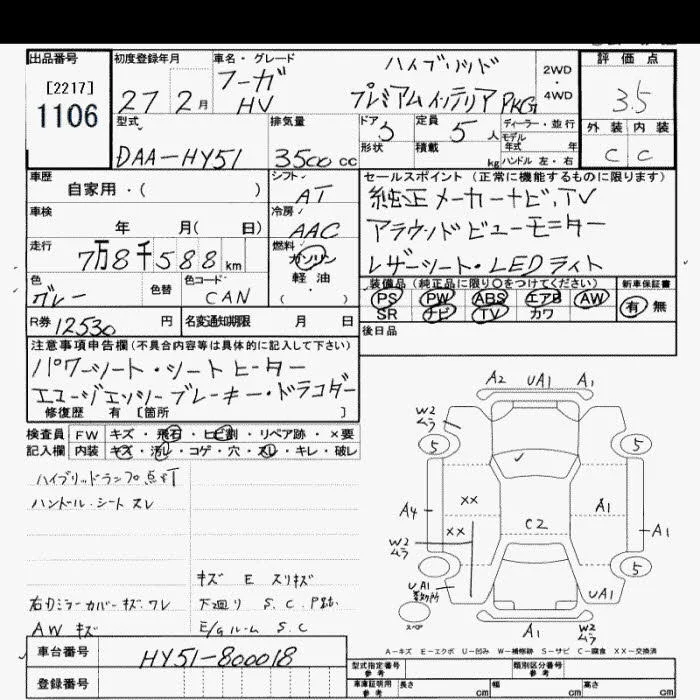 出品番号
[2217]
1106
初度登録年月
27 2月
車名・グレード
フーガ ハイブリッド
HV プレミアムインテリア PKG
2WD
・
4WD
評価点
3.5
外装 内装
C C
型式
DAA-HY51
排気量
3500 cc
ドア
定員
5 人
形状
積載
kg
ディーラー・並行
モデル
年式 年
ハンドル 左・右
車歴
自家用・( )
シフト
AT
車検
年 月( 日)
冷房
AAC
走行
7万8千588 km
燃料
ガソリン
軽油
( ・ )
色
グレー
色替
色コード
CAN
R券 12530 円
名変通知期限 月 日
セールスポイント(正常に機能するものに限ります)
純正メーカーナビ,TV
アラウンドビューモニター
レザーシート・LEDライト
装備品(純正品に限り○をつけてください)
PS PW ABS エアB AW
SR ナビ TV カワ
新車保証書
有 無
後日品
注意事項申告欄(不具合内容等は具体的に記入して下さい)
パワーシート・シートヒーター
エマージェンシーブレーキ・ドラレコダー
修復歴 有 [箇所 ]
検査員 FW キズ・飛石・ヒビ割・リペア跡・×要
記入欄 内装 キズ・汚レ・コゲ・穴・スレ・キレ・破レ
ハイブリッドランプ点灯
ハンドル・シート スレ
キズ E スリキズ
右ミラーカバーキズ・ワレ
下廻り S.C
AW キズ
E/Gルーム S.C
A2 UA1 A1
W2
ムラ
5 5
XX
A4 A1 A1
XX
C2
W2
ムラ
5
UA1
UA1
スペア
A1 W2
ムラ
A-キズ E-エクボ U-凹み W-補修跡 S-サビ C-腐食 XX-交換済
車台番号
HY51-800018
登録番号
型式指定番号
参考
類別区分番号
参考
車庫証明用
参考
長さ cm 幅 cm 高さ cm